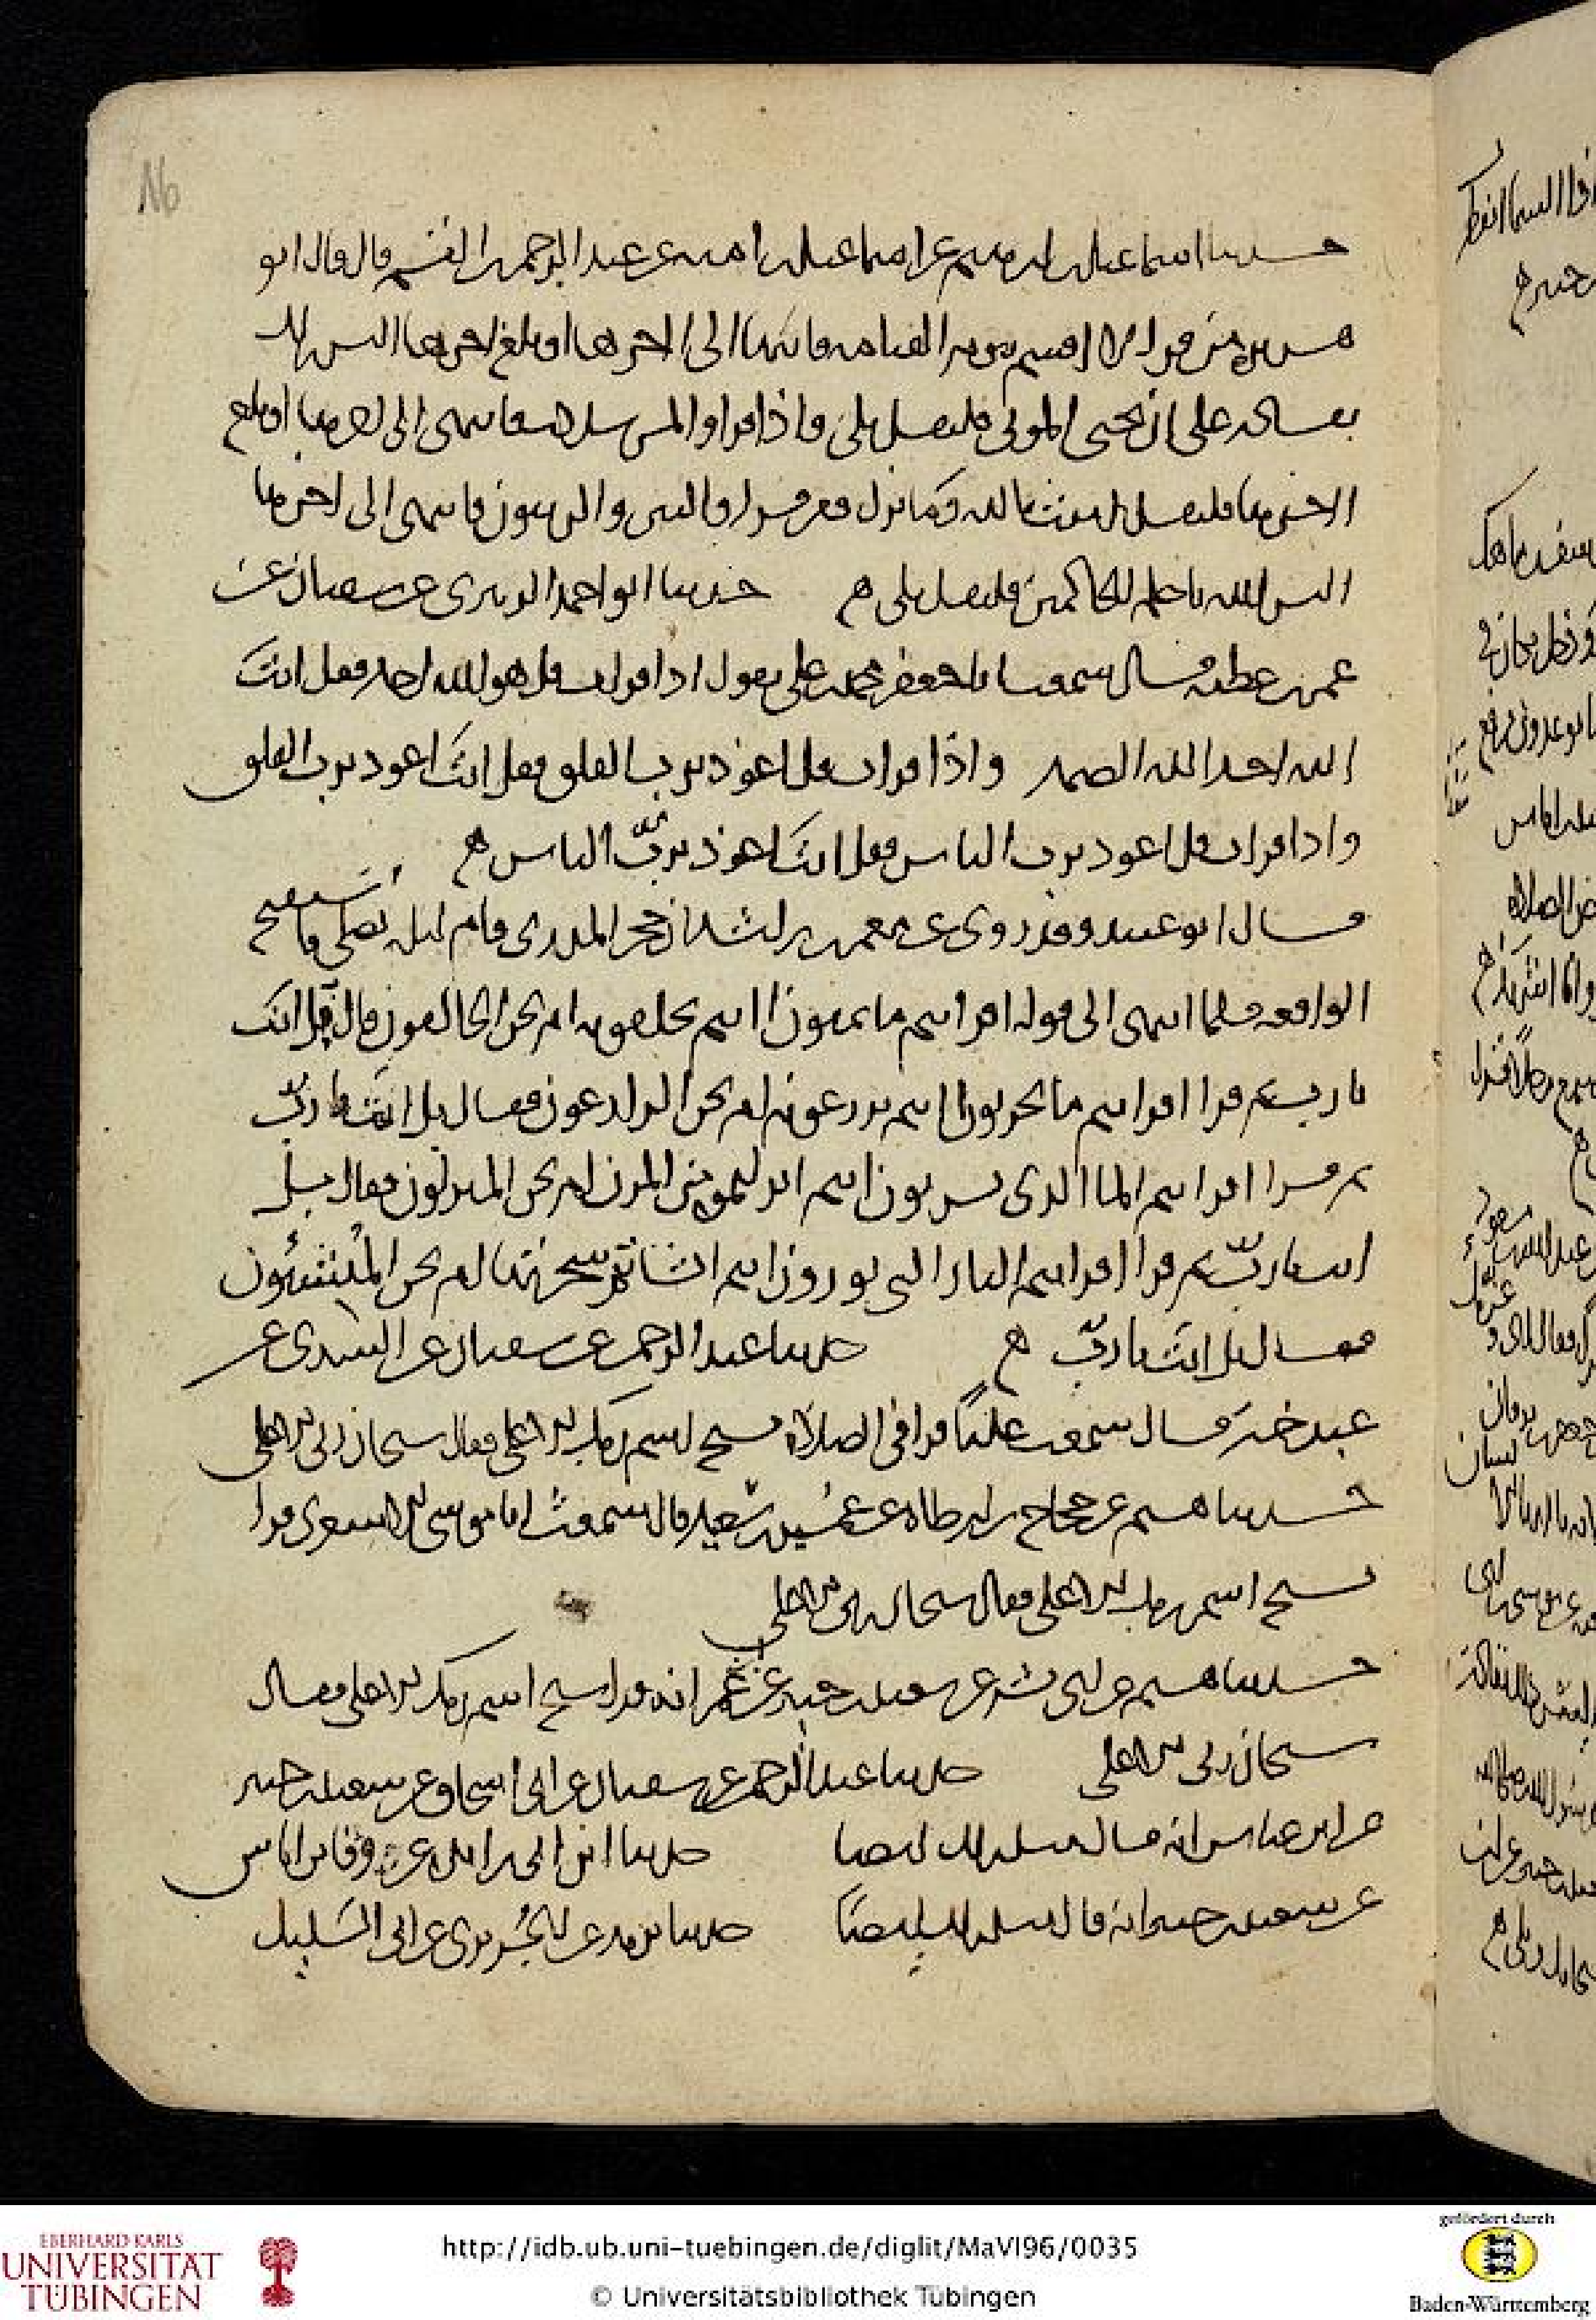 16
حدثنا اسماعيل بن ابرهيم عن اسماعيل بن اميه عن عبد الرحمن بن القسم قال قال ابو
هريرة من قرا لا اقسم بيوم القيامه فانتهى الى اخرها او بلغ اخرها اليس ذلك
بقادر على ان يحيى الموتى فليقل بلى واذا قرا والمرسلات فانتهى الى اخرها او بلغ
اخرها فليقل امنت بالله وما انزل ومن قرا والتين والزيتون فانتهى الى اخرها
اليس الله باحكم الحاكمين فليقل بلى ه حدثنا ابو احمد الزبيرى عن سفيان عن
عمر بن عطيه قال سمعت ابا جعفر محمد بن على يقول اذا قرات قل هو الله احد فقل انت
الله احد الله الصمد واذا قرات قل اعوذ برب الفلق فقل انت اعوذ برب الفلق
واذا قرات قل اعوذ برب الناس فقل انت اعوذ بربّ الناس ه
قال ابو عبيد وقد روى عن معمر بن شداد ان حجر المدرى قام ليله يصلى فاستفتح
الواقعه فلما انتهى الى قوله افرايتم ما تمنون اانتم تخلقونه ام نحن الخالقون قال بل انت
يا رب ثم قرا افرايتم ما تحرثون اانتم تزرعونه ام نحن الزارعون فقال بل انت يا ربّ
ثم قرا افرايتم الما الذى تشربون اانتم انزلتموه من المزن ام نحن المنزلون فقال بل
انت يا ربّ ثم قرا افرايتم النار التى تورون اانتم انشاتم شجرتها ام نحن المنشئون
فقال بل انت يا ربّ ه حدثنا عبد الرحمن عن سفيان عن السدى عن
عبد خير قال سمعت عليًا قرا فى الصلاة سبح اسم ربك الاعلى فقال سبحان ربى الاعلى
حدثنا هشيم عن حجاج بن ارطاه عن عمير بن سعيد قال سمعت ابا موسى الاشعرى قرا
سبح اسم ربك الاعلى فقال سبحان ربى الاعلى
حدثنا هشيم عن ابى بشر عن سعيد بن جبير عن عمر انه قرا سبح اسم ربك الاعلى فقال
سبحان ربى الاعلى حدثنا عبد الرحمن عن سفيان عن ابى اسحاق عن سعيد بن جبير
عن ابن عباس انه قال مثل ذلك ايضا حدثنا ابن ابى زايده عن وقا بن اياس
عن سعيد بن جبير انه قال مثل ذلك ايضًا حدثنا يزيد عن الجُريرى عن ابى السَليل
EBERHARD KARLS
UNIVERSITÄT
TÜBINGEN
http://idb.ub.uni-tuebingen.de/diglit/MaVI96/0035
© Universitätsbibliothek Tübingen
gefördert durch
Baden-Württemberg